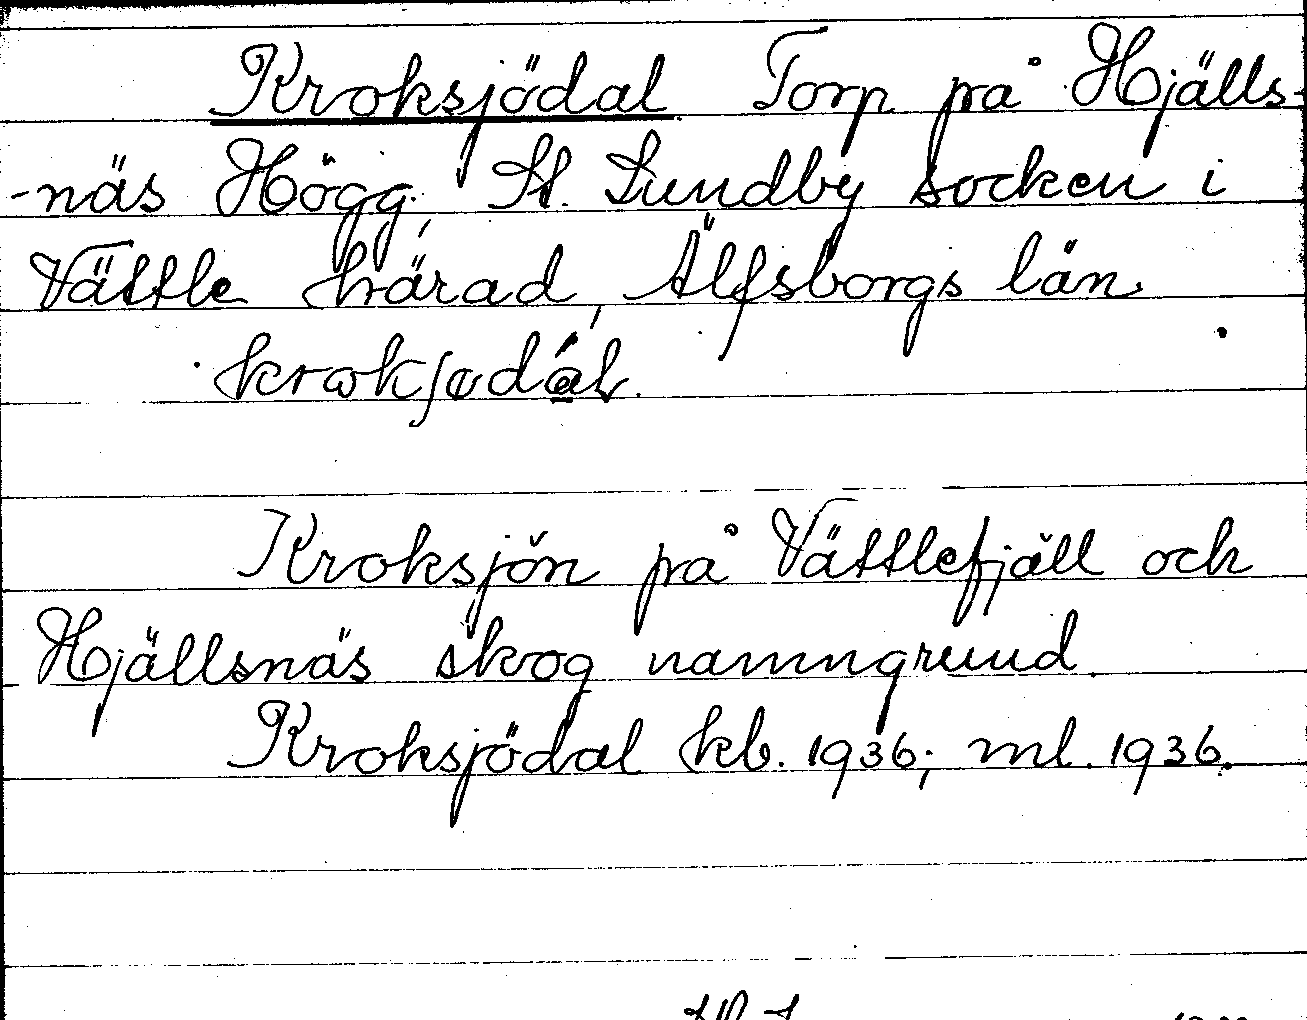 Kroksjödal Torp på Hjälls-
-näs Högg, St. Lundby socken i
Vättle härad, Älfsborgs län.
krokſødál.
Kroksjön på Vättlefjäll och
Hjällsnäs skog namngrund.
Kroksjödal kb. 1936; ml. 1936.